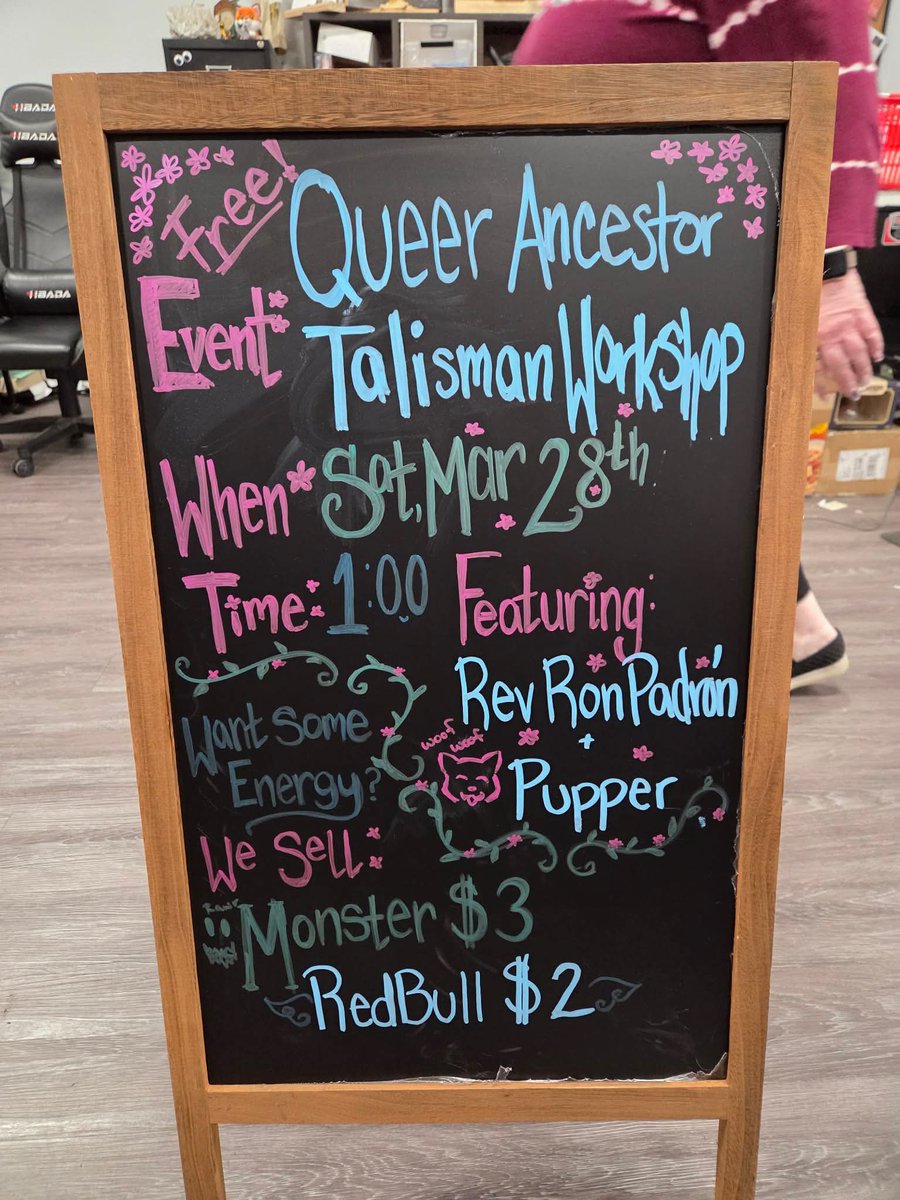 Free!
Event:
Queer Ancestor
Talisman Workshop
When:
Sat, Mar 28th
Time:
1:00
Featuring:
Rev Ron Padrón
+
Pupper
woof
woof
Want Some
Energy?
We Sell:
Monster $3
RedBull $2
IIBADA
IIBADA
IIBADA